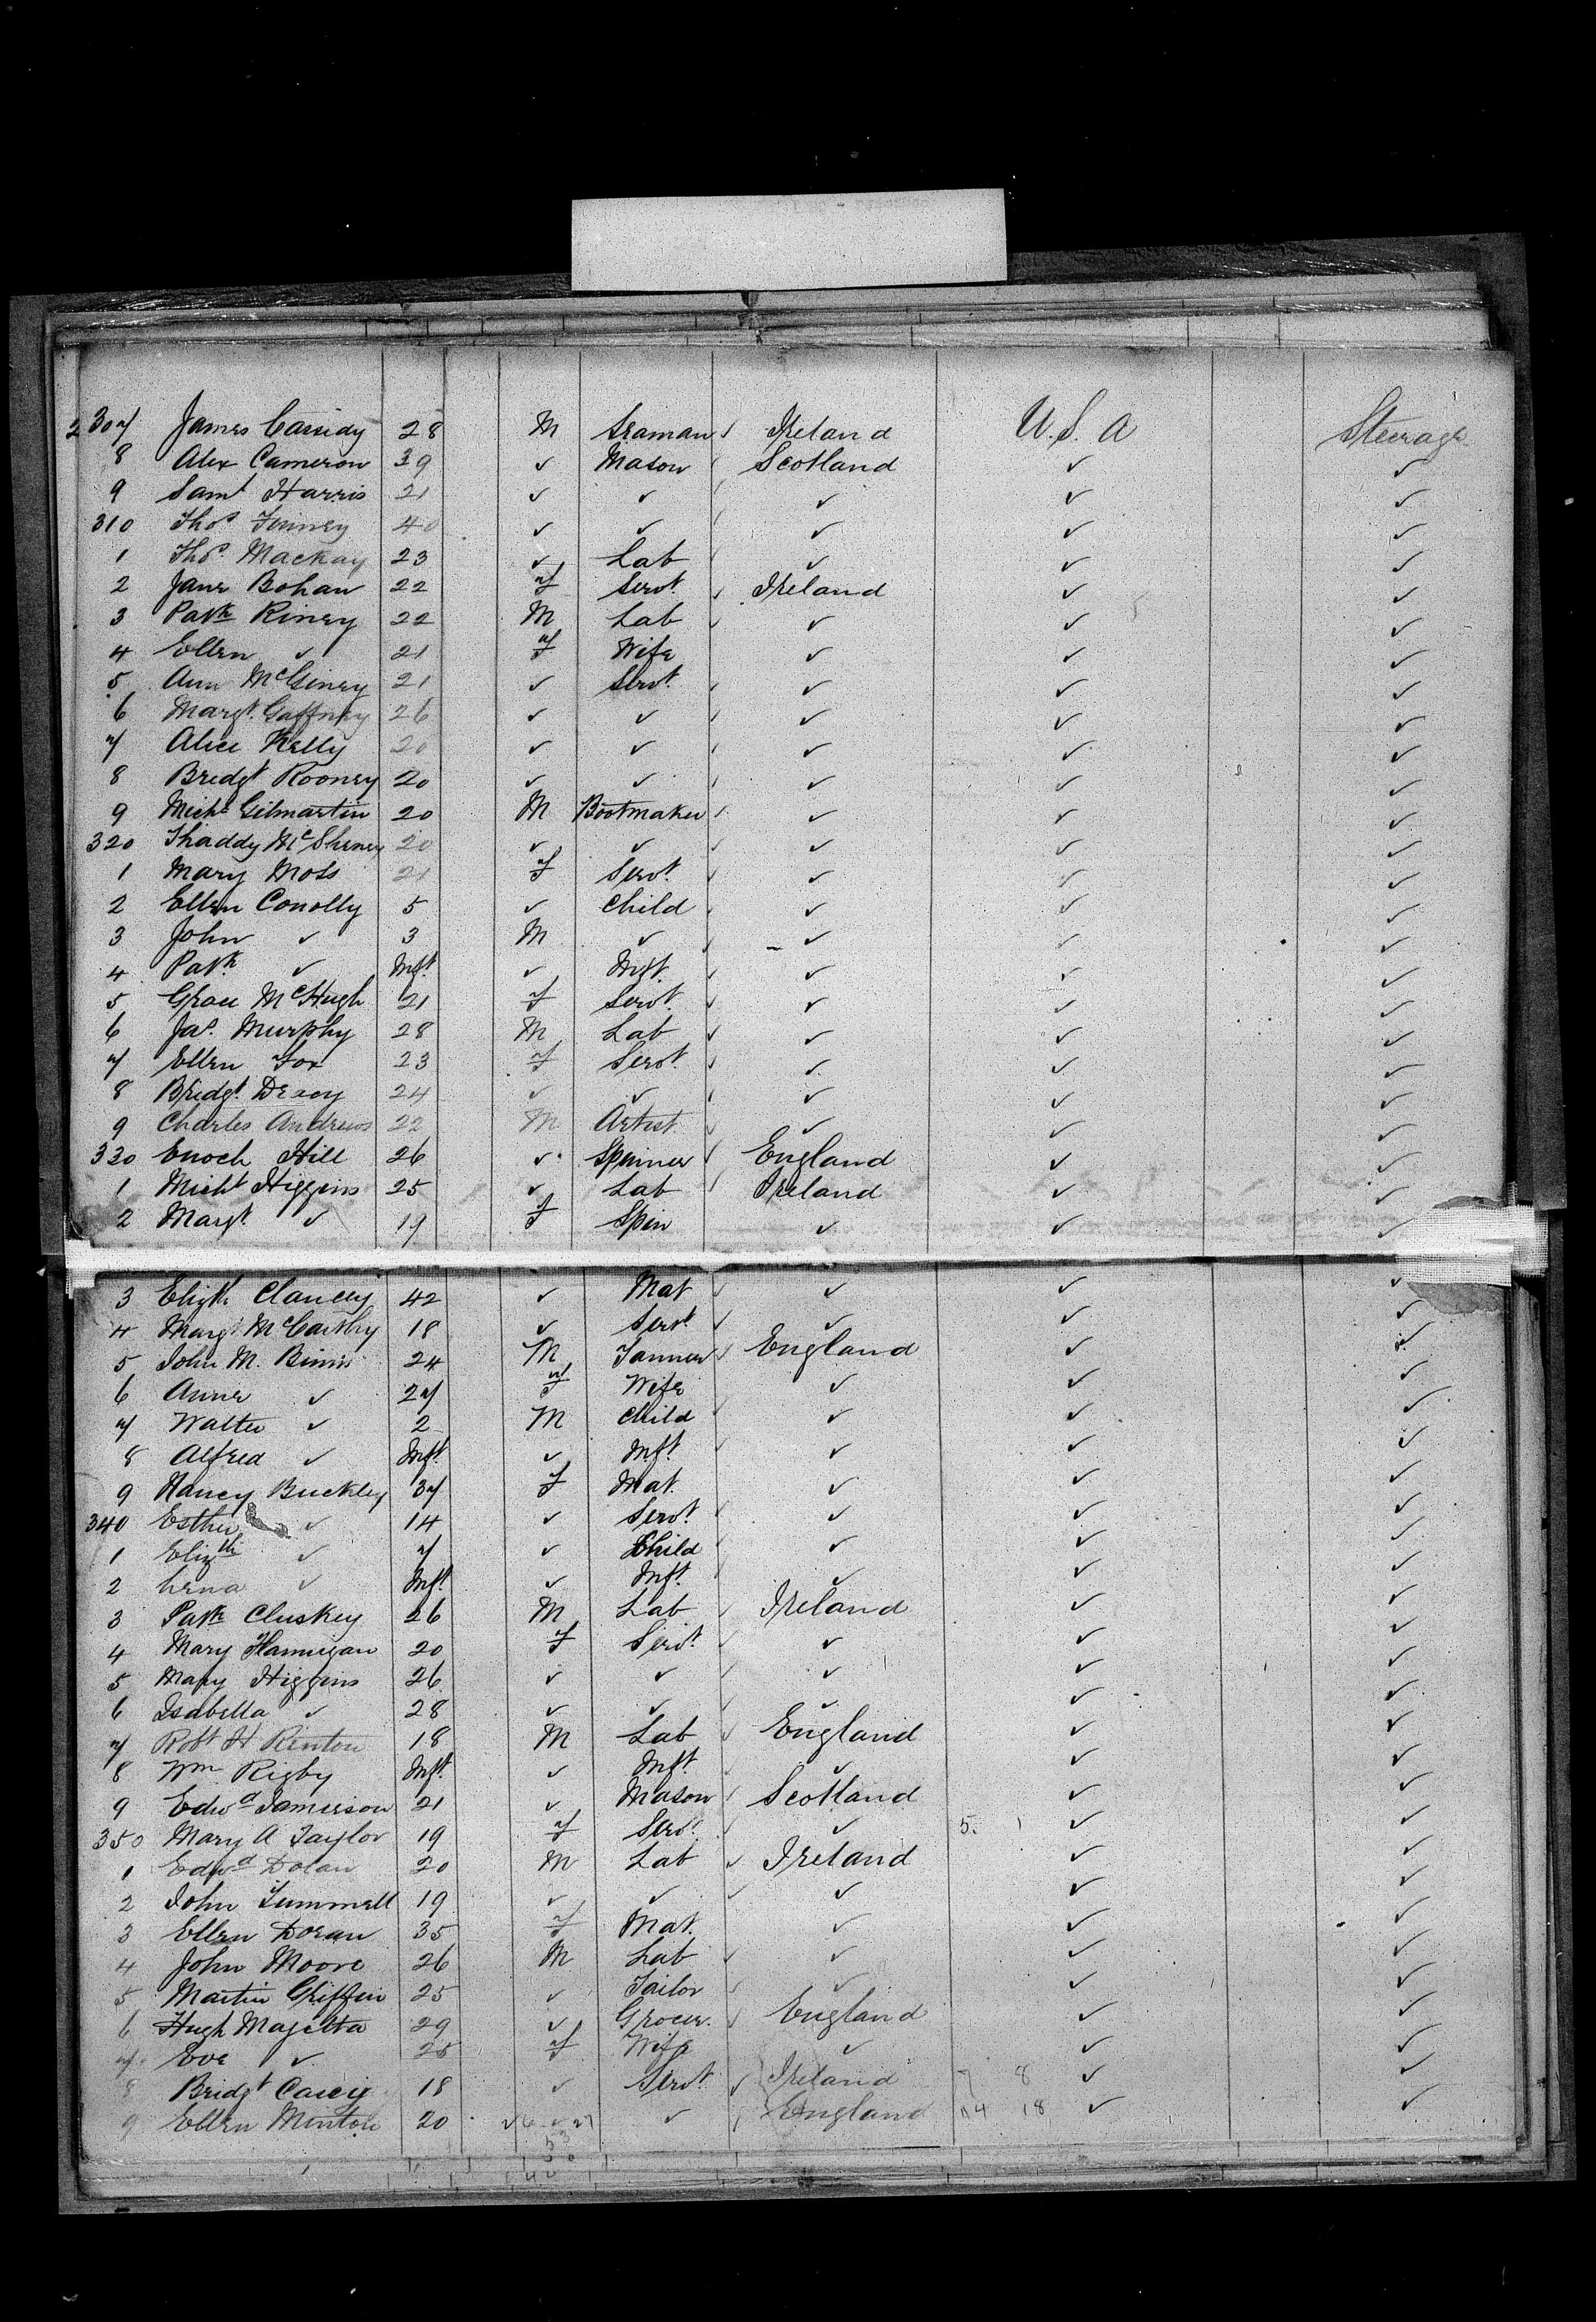 307 James Cassidy 28 M Seaman ✓ Ireland U.S.A Steerage
8 Alex Cameron 39 ✓ Mason ✓ Scotland ✓ ✓
9 Saml Harris 21 ✓ ✓ ✓ ✓ ✓
310 Thos Finney 40 ✓ ✓ ✓ ✓ ✓
1 Thos Mackay 23 ✓ Lab ✓ ✓ ✓ ✓
2 Jane Bohan 22 F Servt. ✓ Ireland ✓ ✓
3 Patk Riney 22 M Lab ✓ ✓ ✓ ✓
4 Ellen ✓ 21 F Wife ✓ ✓ ✓
5 Ann McGinry 21 ✓ Servt. ✓ ✓ ✓ ✓
6 Margt. Gaffney 26 ✓ ✓ ✓ ✓ ✓ ✓
7 Alice Kelly 20 ✓ ✓ ✓ ✓ ✓ ✓
8 Bredgt Rooney 20 ✓ ✓ ✓ ✓ ✓ ✓
9 Michl Gilmartin 20 M Bootmaker ✓ ✓ ✓ ✓
320 Thaddy McSharey 20 ✓ ✓ ✓ ✓ ✓ ✓
1 Mary Moss 21 F Servt. ✓ ✓ ✓ ✓
2 Ellen Conolly 5 ✓ Child ✓ ✓ ✓ ✓
3 John ✓ 3 M ✓ ✓ ✓ ✓ ✓
4 Patk ✓ Inft. ✓ Inft. ✓ ✓ ✓ ✓
5 Grace McHugh 21 F Servt. ✓ ✓ ✓ ✓
6 Jas. Murphy 28 M Lab ✓ ✓ ✓ ✓
7 Ellen Fox 23 F Servt. ✓ ✓ ✓ ✓
8 Bridgt. Deacy 24 ✓ ✓ ✓ ✓ ✓ ✓
9 Charles Andrews 22 M Artist ✓ ✓ ✓ ✓
330 Enoch Hill 26 ✓ Spinner ✓ England ✓ ✓
1 Michl Higgins 25 ✓ Lab ✓ Ireland ✓ ✓
2 Margt. ✓ 19 F Spin ✓ ✓ ✓
3 Elizth Clancey 42 ✓ Mat ✓ ✓ ✓ ✓
4 Margt. McCarthy 18 ✓ Servt ✓ ✓ ✓ ✓
5 John M. Binns 24 M Tanner ✓ England ✓ ✓
6 Anne ✓ 27 F Wife ✓ ✓ ✓
7 Walter ✓ 2 M Child ✓ ✓ ✓ ✓
8 Alfred ✓ Inft. ✓ Inft. ✓ ✓ ✓ ✓
9 Nancy Buckley 37 F Mat. ✓ ✓ ✓
340 Esther ✓ 14 ✓ Servt ✓ ✓ ✓ ✓
1 Elizth ✓ 7 ✓ Child ✓ ✓ ✓ ✓
2 ✓ Inft. ✓ Inft. ✓ ✓ ✓ ✓
3 Patk Cluskey 26 M Lab ✓ Ireland ✓ ✓
4 Mary Flannigan 20 F Servt. ✓ ✓ ✓ ✓
5 Mary Higgins 26 ✓ ✓ ✓ ✓ ✓ ✓
6 Isabella ✓ 28 ✓ ✓ ✓ ✓ ✓ ✓
7 Robt H Renton 18 M Lab ✓ England ✓ ✓
8 Wm Rigby Inft. ✓ Inft ✓ ✓ ✓ ✓
9 Edwd Jamieson 21 ✓ Mason ✓ Scotland ✓ ✓
350 Mary A Taylor 19 F Servt. ✓ ✓ 5. 1 ✓ ✓
1 Edwd Dolan 20 M Lab ✓ Ireland ✓ ✓
2 John Tummell 19 ✓ ✓ ✓ ✓ ✓ ✓
3 Ellen Doran 35 F Mat. ✓ ✓ ✓
4 John Moore 26 M Lab ✓ ✓ ✓ ✓
5 Martin Griffin 25 ✓ Tailor ✓ ✓ ✓ ✓
6 Hugh Majetta 29 ✓ Grocer. ✓ England ✓ ✓
7 Eve ✓ 25 F Wife ✓ ✓ ✓
8 Bridgt Casey 18 ✓ Servt ✓ Ireland 7 8 ✓ ✓
9 Ellen Minton 20 ✓ ✓ ✓ England 14 18 ✓ ✓